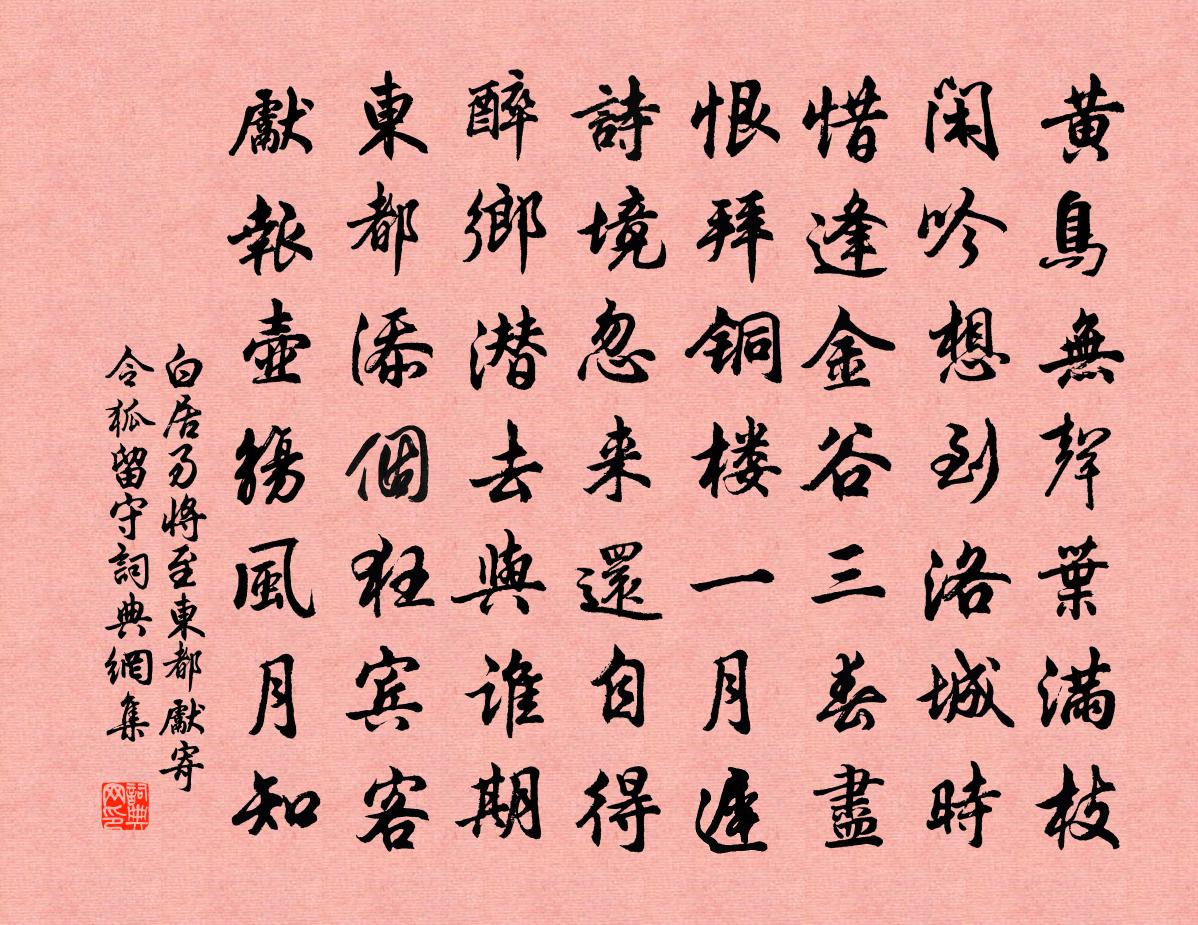 黄鳥無聲葉滿枝
閑吟想到洛城時
惜逢金谷三春盡
恨拜銅楼一月遲
詩境忽来還自得
醉鄉潜去與誰期
東都添個狂賓客
獻報壺觴風月知
白居易將至東都獻寄
令狐留守詞典網集
詞典网印